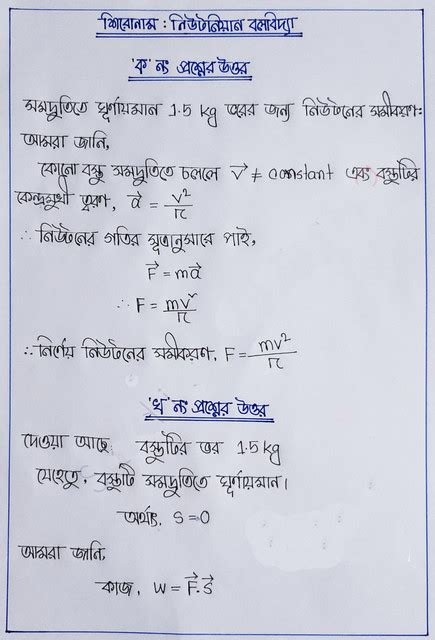 শিরোনাম : নিউটনিয়ান বলবিদ্যা
'ক' নং প্রশ্নের উত্তর
সমদ্রুতিতে ঘূর্ণায়মান 1.5 kg ভরের জন্য নিউটনের সমীকরণ:
আমরা জানি,
কোনো বস্তু সমদ্রুতিতে চললে v⃗ ≠ constant এবং বস্তুটির
কেন্দ্রমুখী ত্বরণ, a⃗ = v²/r
∴ নিউটনের গতির সূত্রানুসারে পাই,
F⃗ = ma⃗
∴ F = mv²/r
∴ নির্ণেয় নিউটনের সমীকরণ, F = mv²/r
'খ' নং প্রশ্নের উত্তর
দেওয়া আছে, বস্তুটির ভর 1.5 kg
যেহেতু, বস্তুটি সমদ্রুতিতে ঘূর্ণায়মান।
অর্থাৎ, S = 0
আমরা জানি,
কাজ, W = F⃗.S⃗